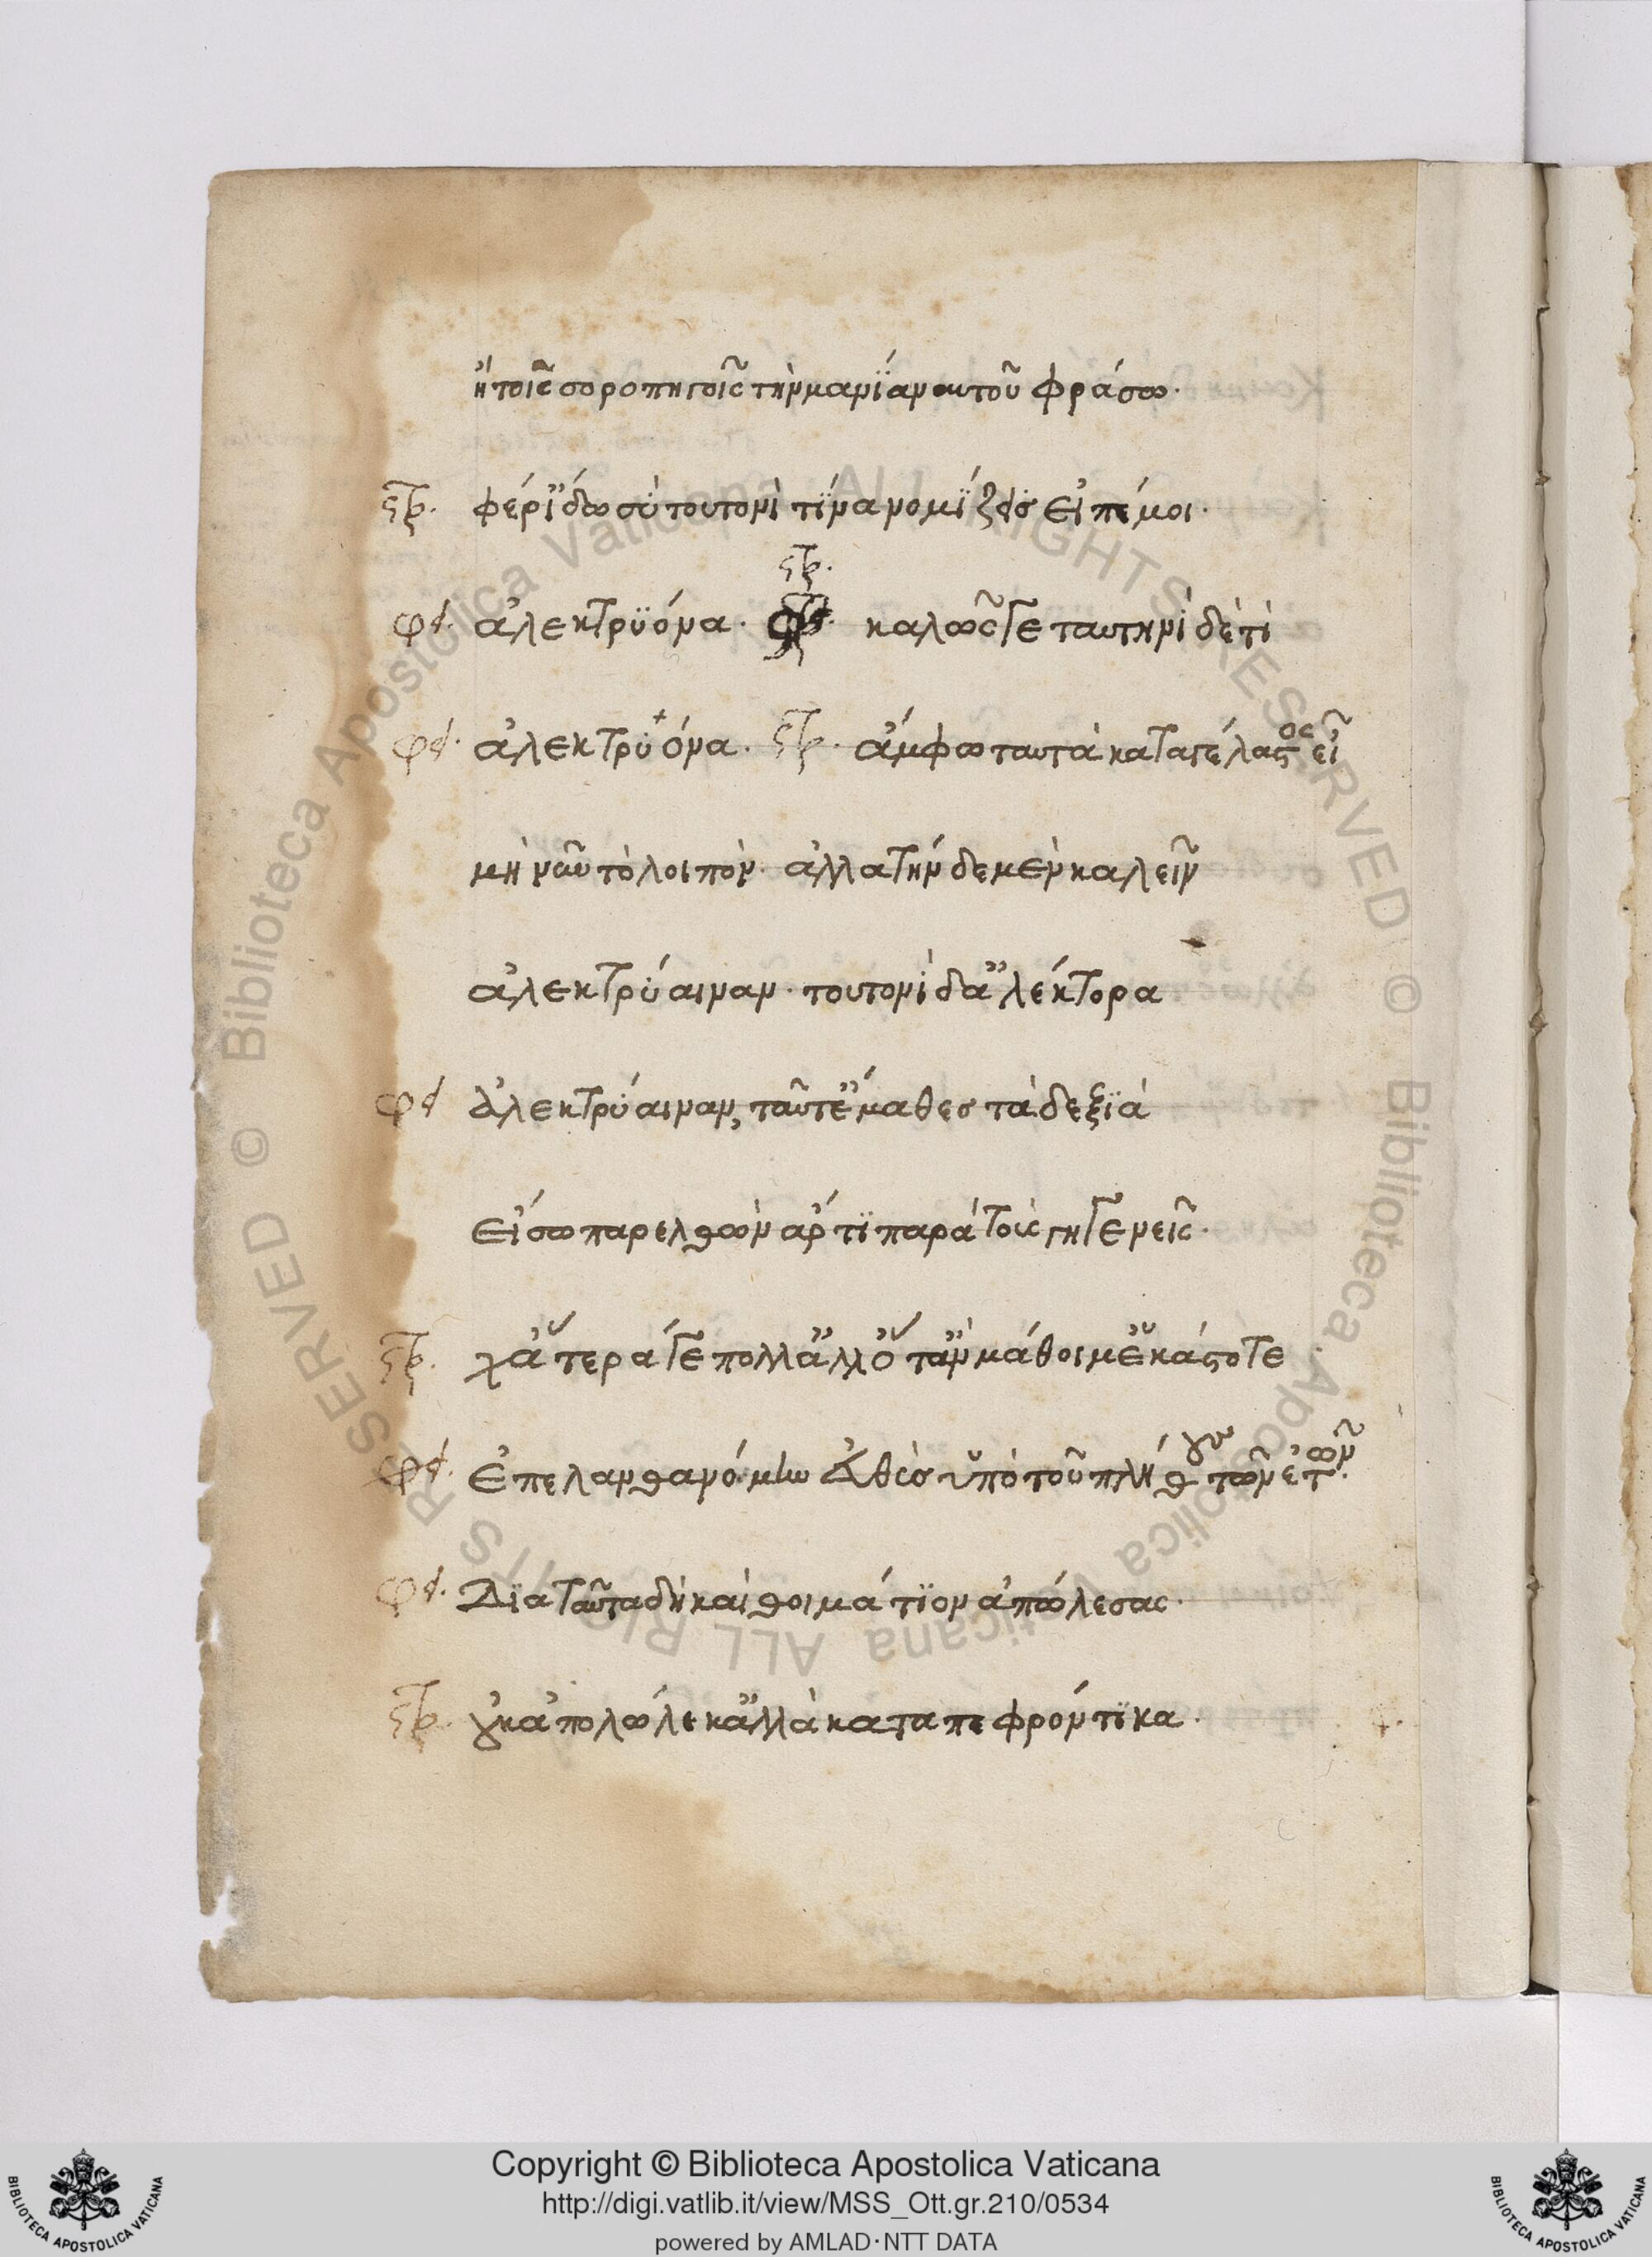 ἢ τοῖς σοροπηγοῖς τὴν μανΐαν αυτοῦ φράσω·
στρ. φέρ ἴδω σὺ τουτονὶ τΐνα νομΐζεις εἰπέ μοι·
στρ.
φει. ἀλεκτρϋόνα· καλῶς γε ταυτηνὶ δὲ τί
φει. ἀλεκτρϋόνα· στρ. ἄμφω ταυτὰ καταγέλαστος εἶ
μὴ νῦν τὸ λοιπὸν· ἀλλα τήνδε μὲν καλεῖν
ἀλεκτρύαιναν· τουτονὶ δ' ἀλέκτορα
φει ἀλεκτρύαιναν, ταῦτ' ἔμαθες τὰ δεξϊὰ
εἴσω παρελθὼν ἄρτϊ παρὰ τοὺς γηγενεῖς·
στρ. χἄτερά γε πόλλ' ἀλλ' ὅ τ' ἂν μάθοιμ' ἑκάστοτε
φει. ἐπελανθανόμην ἂν εὐθὺς ὑπὸ τοῦ πλήθους τῶν ἐτῶν
φει. Δϊα ταῦτα δὴ καὶ θοιμάτϊον ἀπώλεσας·
στρ. οὐκ ἀπολώλεκ' ἀλλὰ καταπεφρόντϊκα·
Copyright © Biblioteca Apostolica Vaticana
http://digi.vatlib.it/view/MSS_Ott.gr.210/0534
powered by AMLAD·NTT DATA
© Biblioteca Apostolica Vaticana ALL RIGHTS RESERVED
© Biblioteca Apostolica Vaticana ALL RIGHTS RESERVED
BIBLIOTECA APOSTOLICA VATICANA
BIBLIOTECA APOSTOLICA VATICANA